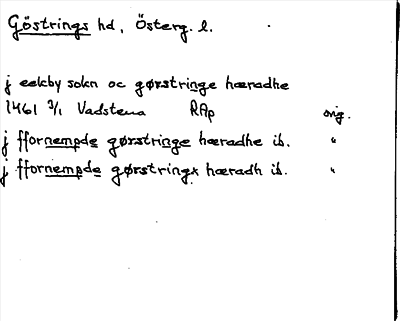 Göstrings hd, Österg. l.
j eekby sokn oc gørstringe hæradhe
1461 3/1 Vadstena RAp orig.
j ffornempde gørstringe hæradhe ib. "
j ffornempde gørstringx hæradh ib. "